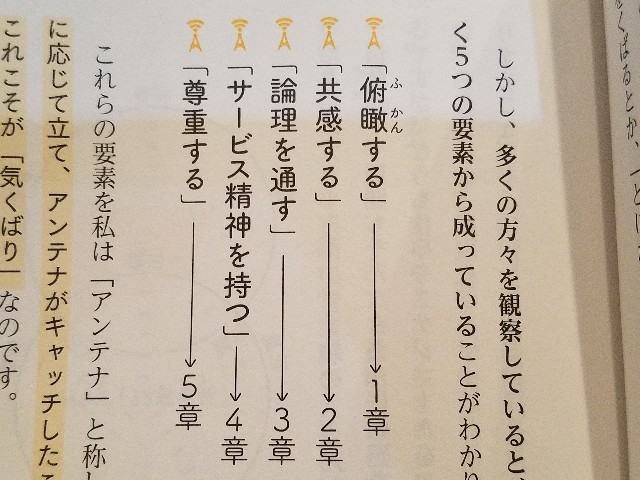 しかし、多くの方々を観察していると、
く5つの要素から成っていることがわかり
「俯瞰する」→1章
ふかん
「共感する」→2章
「論理を通す」→3章
「サービス精神を持つ」→4章
「尊重する」→5章
これらの要素を私は「アンテナ」と称し
に応じて立て、アンテナがキャッチしたこ
これこそが「気くばり」なのです。